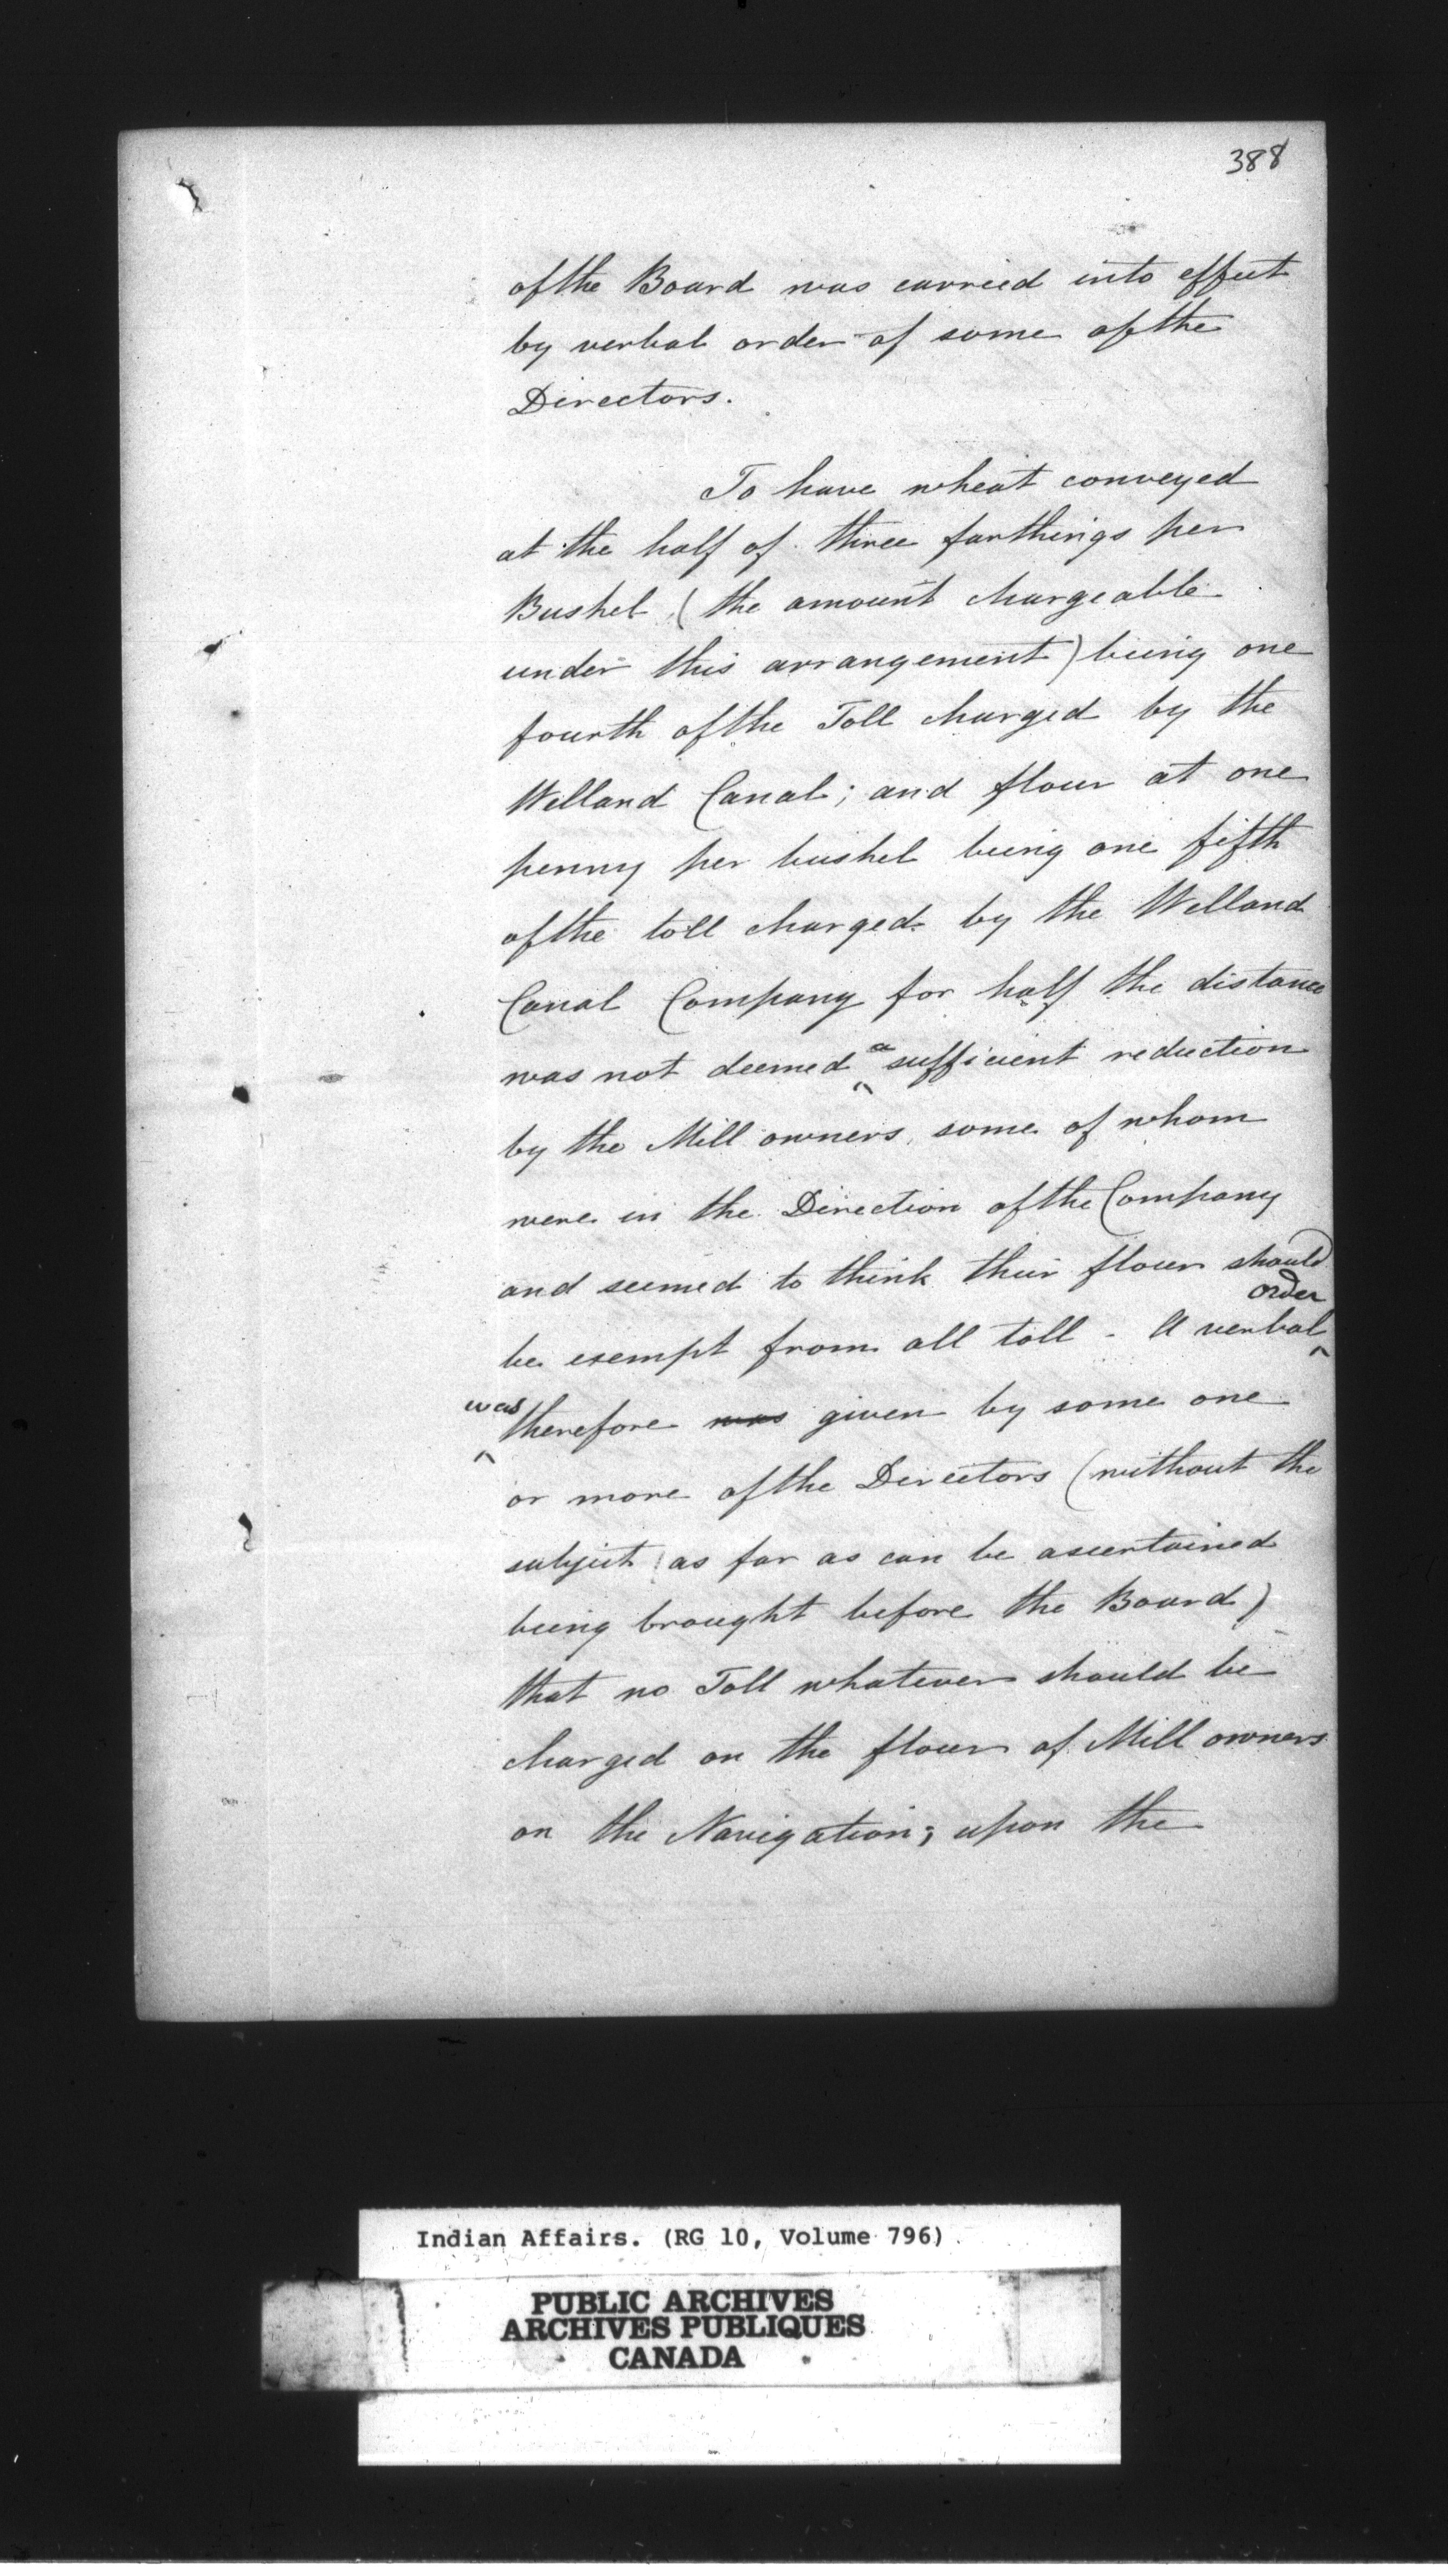 388
of the Board was carried into effect
by verbal order of some of the
Directors.
To have wheat conveyed
at the half of three farthings per
Bushel (the amount chargeable
under this arrangement) being one
fourth of the Toll charged by the
Welland Canal; and flour at one
penny per bushel being one fifth
of the toll charged by the Welland
Canal Company for half the distance
was not deemed a sufficient reduction
by the Mill owners, some of whom
were in the Direction of the Company
and seemed to think their flour should
be exempt from all toll - A verbal order
was therefore was given by some one
or more of the Directors (without the
subject as far as can be ascertained
being brought before the Board)
that no Toll whatever should be
charged on the flour of Mill owners
on the Navigation; upon the
Indian Affairs. (RG 10, Volume 796)
PUBLIC ARCHIVES
ARCHIVES PUBLIQUES
CANADA